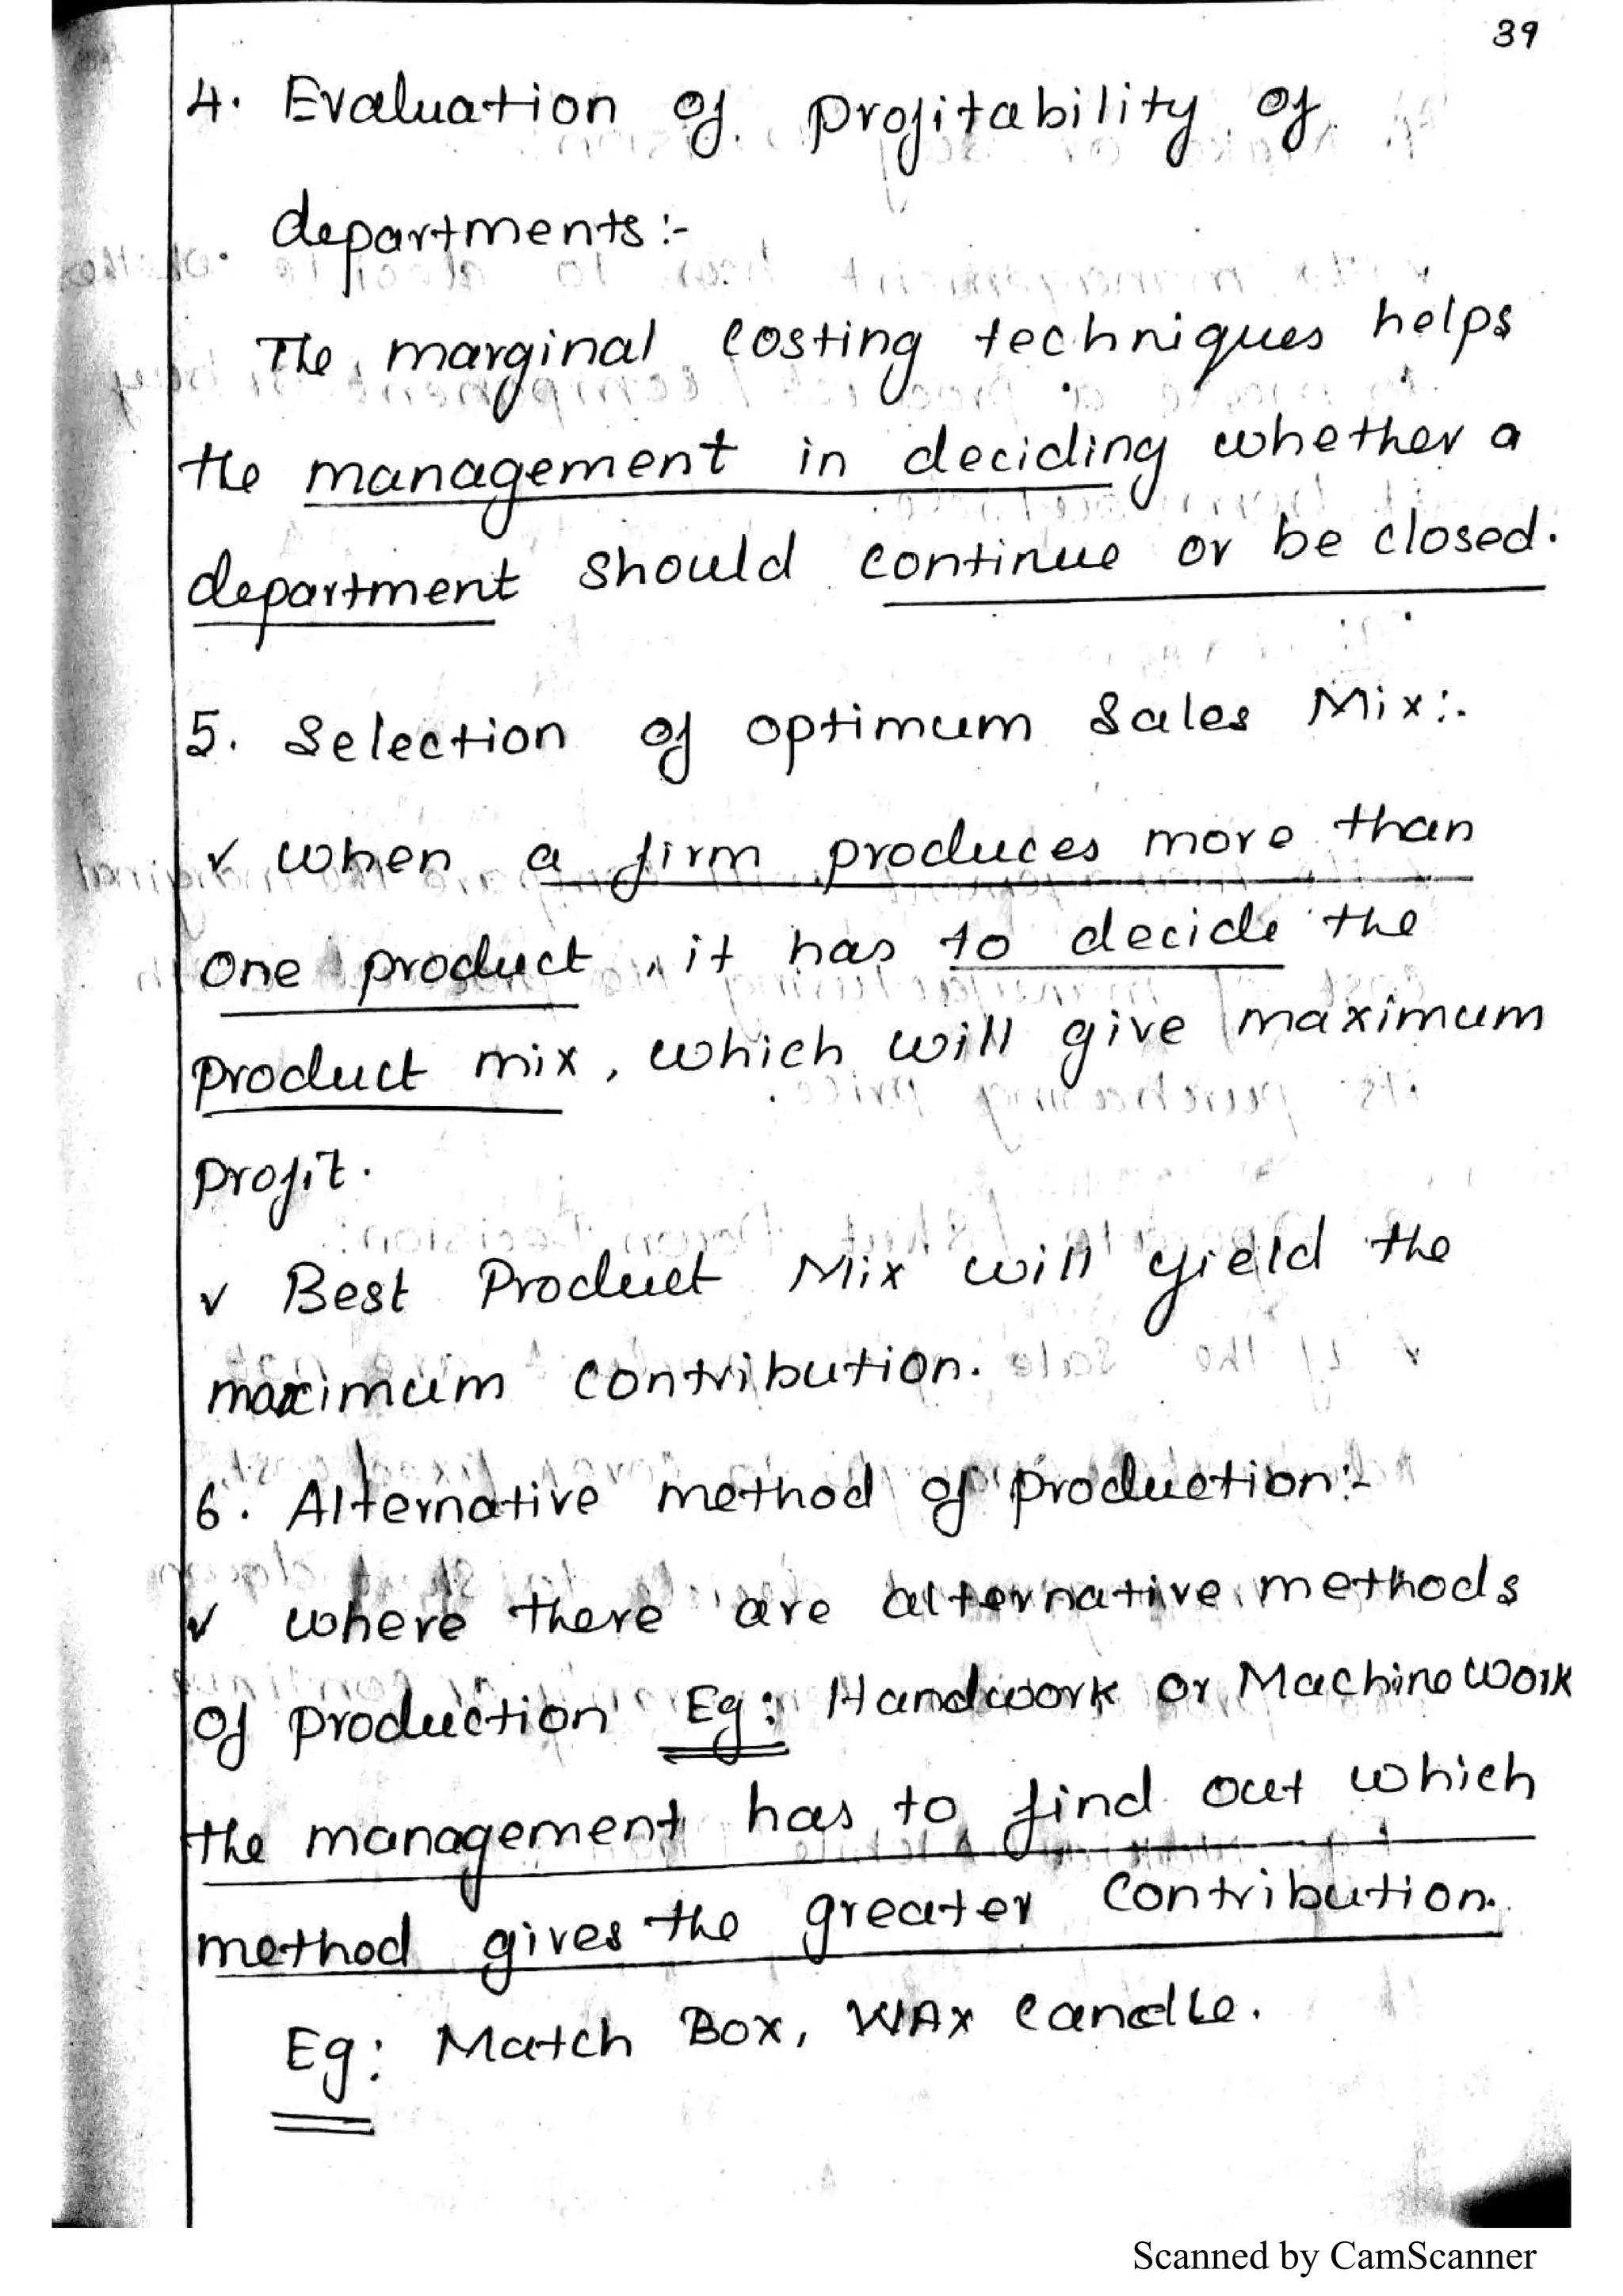 39
4. Evaluation of profitability of
departments:-
The marginal costing techniques helps
the management in deciding whether a
department should continue or be closed.
5. Selection of optimum Sales Mix:-
✓ When a firm produces more than
one product, it has to decide the
product mix, which will give maximum
profit.
✓ Best Product Mix will yield the
maximum contribution.
6. Alternative method of production:-
✓ where there are alternative methods
of production Eg: Handwork or Machine Work
the management has to find out which
method gives the greater contribution.
Eg: Match Box, WAx Candle.
Scanned by CamScanner